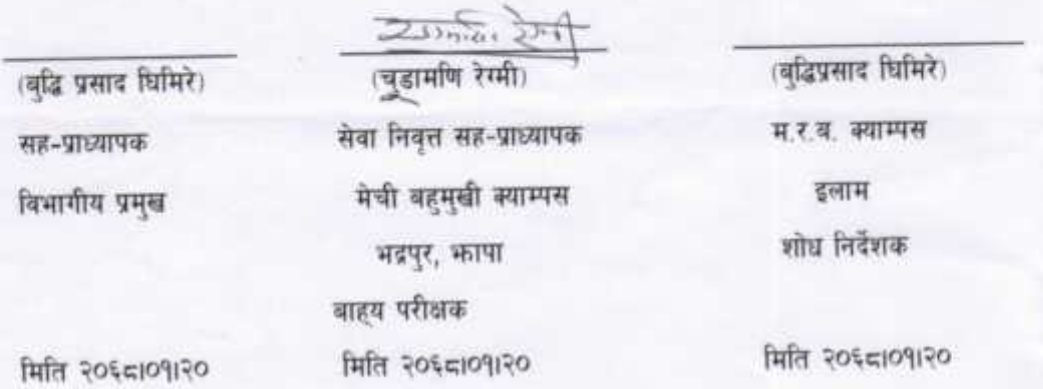 (बुद्धि प्रसाद घिमिरे)
सह-प्राध्यापक
विभागीय प्रमुख
मिति २०६८।०१।२०
(चुडामणि रेग्मी)
सेवा निवृत्त सह-प्राध्यापक
मेची बहुमुखी क्याम्पस
भद्रपुर, झापा
बाह्य परीक्षक
मिति २०६८।०१।२०
(बुद्धिप्रसाद घिमिरे)
म.र.ब. क्याम्पस
इलाम
शोध निर्देशक
मिति २०६८।०१।२०